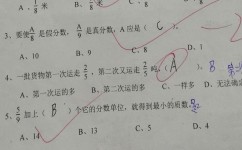 A. 1/8 米 B. 3/8 米 C.
3、要使 A/8 是假分数, A/9 是真分数, A 应是( C )。
A、10 B、9 C、8
4、一批货物第一次运走 2/5 , 第二次又运走 2/5 吨,( A ) B
A、第一次运的多 B、第二次运的多 C、一样多 D、无法确定
5、5/9 加上( B )个它的分数单位,就得到最小的质数。
A、14 B、13 C、5 D、4